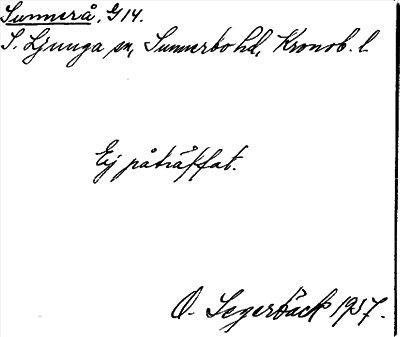 Sunnerå, G 14.
S. Ljunga sn, Sunnerbo hd, Kronob. l.
Ej påträffat.
O. Segerbäck 1937.